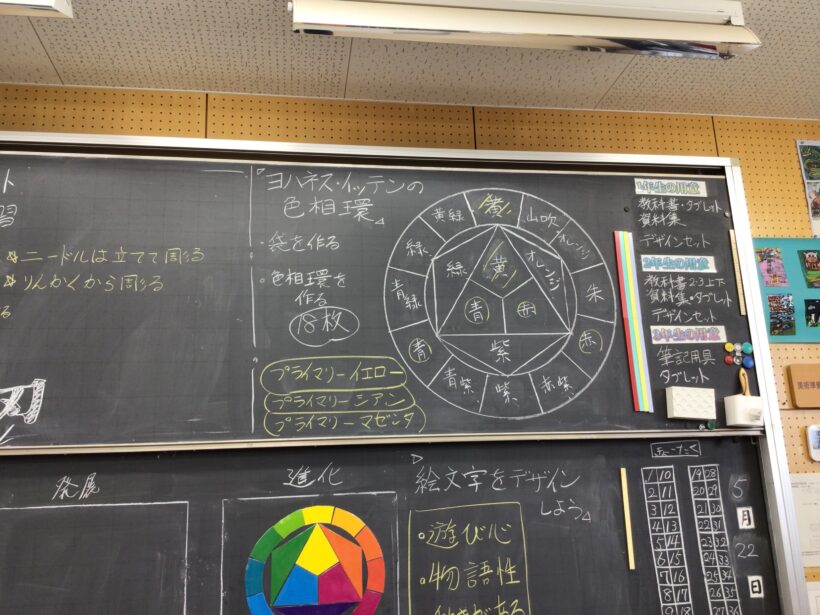 ト
習
ニードルは立てて彫る
りんかくから彫る
る
『ヨハネス・イッテンの
色相環』
・袋を作る
・色相環を
作る
18枚
プライマリーイエロー
プライマリーシアン
プライマリーマゼンタ
黄
山吹
オレンジ
朱
赤
赤紫
紫
青紫
青
青緑
緑
黄緑
緑
オレンジ
紫
黄
青
赤
1年生の用意
教科書・タブレット
資料集
デザインセット
2年生の用意
教科書2・3上下
資料集・タブレット
デザインセット
3年生の用意
筆記用具
タブレット
美術準備
発展
進化
絵文字をデザイン
しよう』
・遊び心
・物語性
がある
1 10 19 28
2 11 20 29
3 12 21 30
4 13 22 31
5 14 23 32
6 15 24 33
7 16 25 34
8 17 26 35
9 18 27 36
5
月
22
日